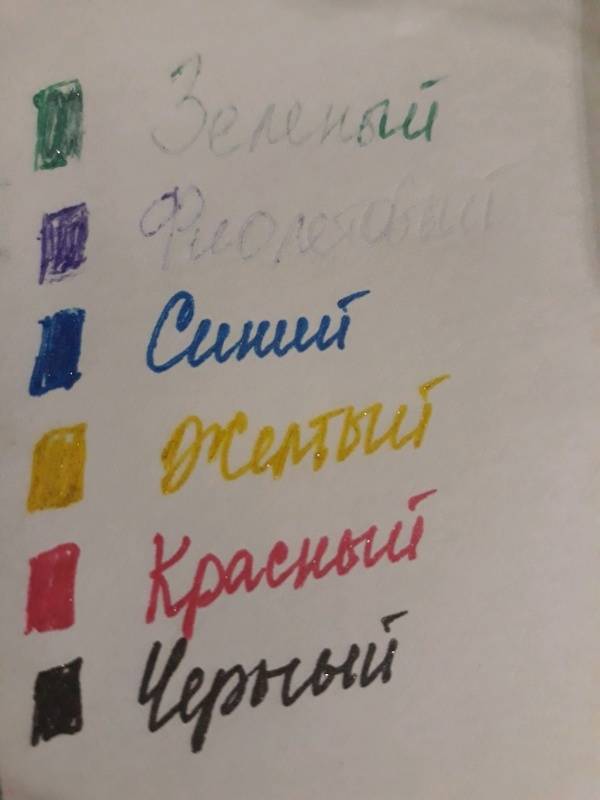 Зеленый
Фиолетовый
Синий
Желтый
Красный
Черный